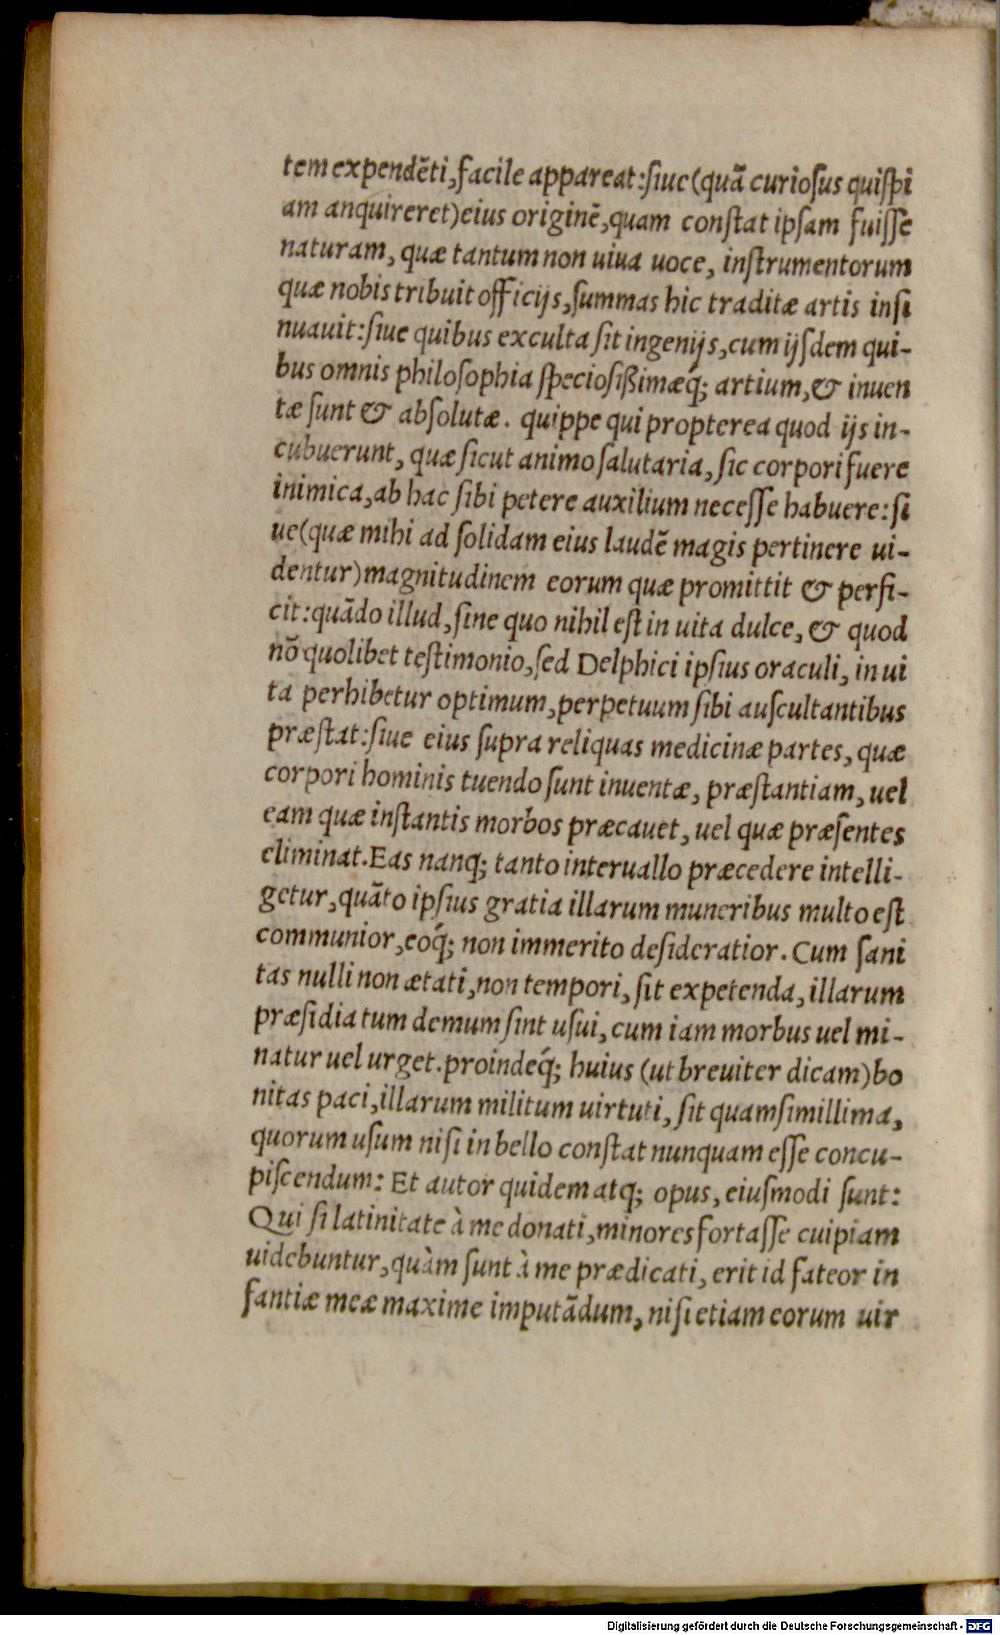 tem expendēti, facile appareat: siue (quā curiosus quispi
am anquireret) eius originē, quam constat ipsam fuisse
naturam, quæ tantum non uiua uoce, instrumentorum
quæ nobis tribuit officijs, summas hic traditæ artis insi
nuauit: siue quibus exculta sit ingenijs, cum ijsdem qui-
bus omnis philosophia speciosißimæq́; artium, & inuen
tæ sunt & absolutæ. quippe qui propterea quod ijs in-
cubuerunt, quæ sicut animo salutaria, sic corpori fuere
inimica, ab hac sibi petere auxilium necesse habuere: si
ue (quæ mihi ad solidam eius laudē magis pertinere ui-
dentur) magnitudinem eorum quæ promittit & perfi-
cit: quādo illud, sine quo nihil est in uita dulce, & quod
nō quolibet testimonio, sed Delphici ipsius oraculi, in ui
ta perhibetur optimum, perpetuum sibi auscultantibus
præstat: siue eius supra reliquas medicinæ partes, quæ
corpori hominis tuendo sunt inuentæ, præstantiam, uel
eam quæ instantis morbos præcauet, uel quæ præsentes
eliminat. Eas nanq; tanto interuallo præcedere intelli-
getur, quāto ipsius gratia illarum muneribus multo est
communior, eoq́; non immerito desideratior. Cum sani
tas nulli non ætati, non tempori, sit expetenda, illarum
præsidia tum demum sint usui, cum iam morbus uel mi-
natur uel urget. proindeq́; huius (ut breuiter dicam) bo
nitas paci, illarum militum uirtuti, sit quamsimillima,
quorum usum nisi in bello constat nunquam esse concu-
piscendum: Et autor quidem atq; opus, eiusmodi sunt:
Qui si latinitate à me donati, minores fortasse cuipiam
uidebuntur, quàm sunt à me prædicati, erit id fateor in
fantiæ meæ maxime imputādum, nisi etiam eorum uir
Digitalisierung gefördert durch die Deutsche Forschungsgemeinschaft - DFG